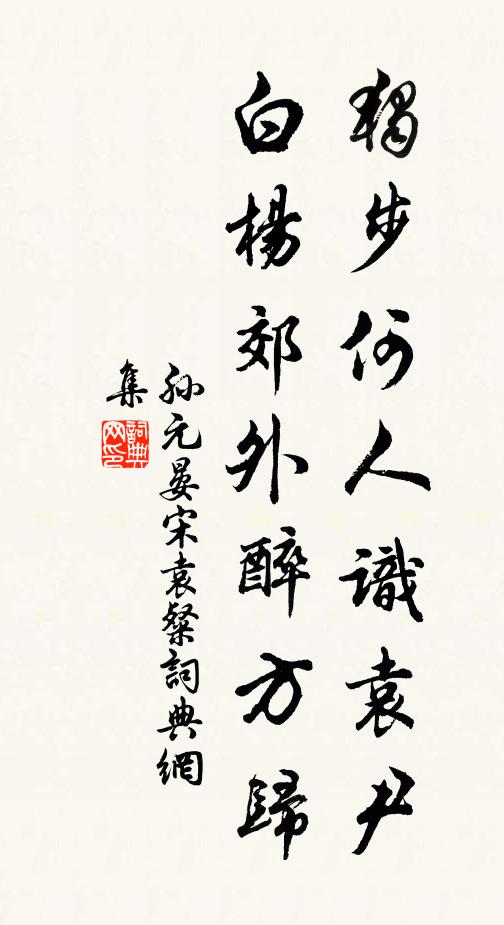 獨步何人識袁尹
白楊郊外醉方歸
孫元晏宋袁粲詞典網
集
詞典网印